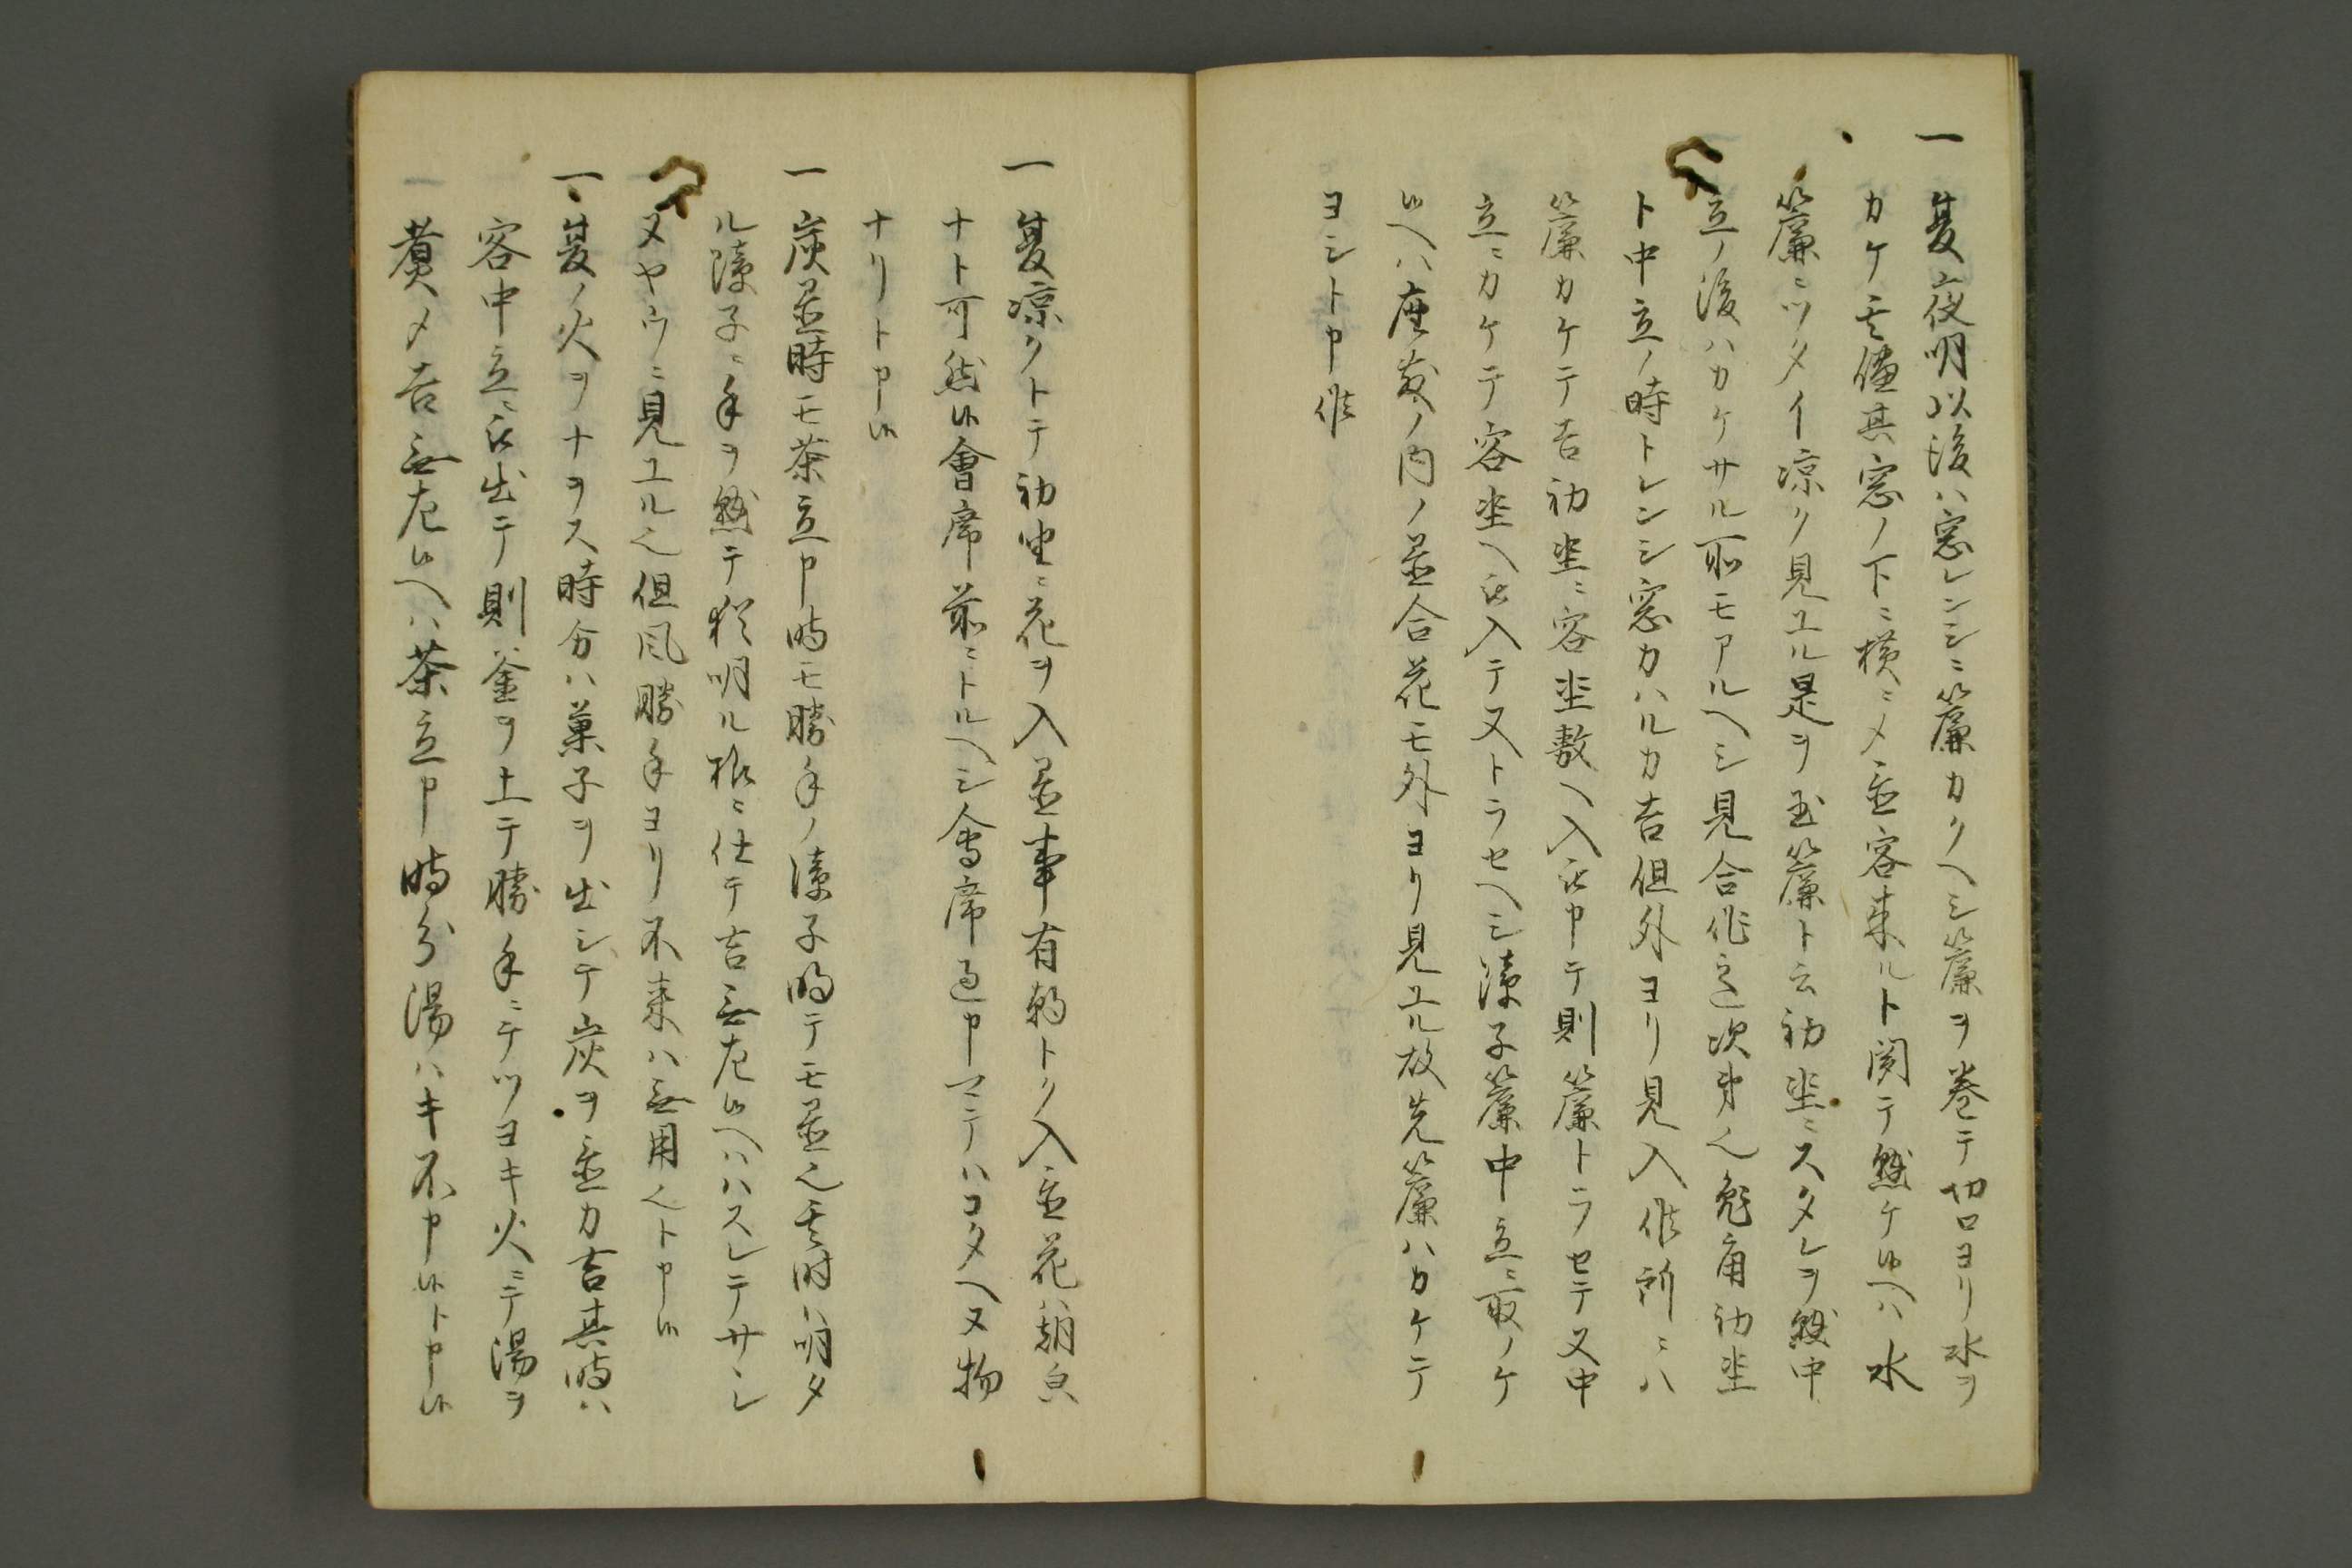 一夏夜明以後ハ窓レンシニ簾カクヘシ簾ヲ巻テ切口ヨリ水ヲ
カケ其儘其窓ノ下ニ横ニメ置客来ルト聞テ懸ケ候ヘハ水
簾ニツタイ涼ク見ユル是ヲ玉簾ト云初坐ニスタレヲ懸中
立ノ後ハカケサル所モアルヘシ見合作意次第也兎角初坐
ト中立ノ時トレンシ窓カハルカ吉但外ヨリ見入候所ニハ
簾カケテ吉初坐ニ客坐敷ヘ入被申テ則簾トラセテ又中
立ニカケテ客坐ヘ被入テ又トラセヘシ障子簾中立ニ取ノケ
候ヘハ座敷ノ内ノ置合花モ外ヨリ見ユル故先簾ハカケテ
ヨシト申候
一夏涼クトテ初坐ニ花ヲ入置事有朝トク入置花ハ朝皃
ナト可然候會席前ニトルヘシ會席過申マテハコタヘヌ物
ナリト申候
一炭置時モ茶立申時モ勝手ノ障子明テモ置也其時ハ明タ
ル障子ニ手ヲ懸テ猶明ル様ニ仕テ吉無左候ヘハハスレテサシ
ヌヤウニ見ユル也但風勝手ヨリ不来ハ無用也ト申候
一夏ノ火ヲナヲス時分ハ菓子ヲ出シテ炭ヲ置カ吉其時ハ
客中立ニ被出テ則釜ヲ上テ勝手ニテツヨキ火ニテ湯ヲ
煮メ吉無左候ヘハ茶立申時分湯ハキ不申候ト申候